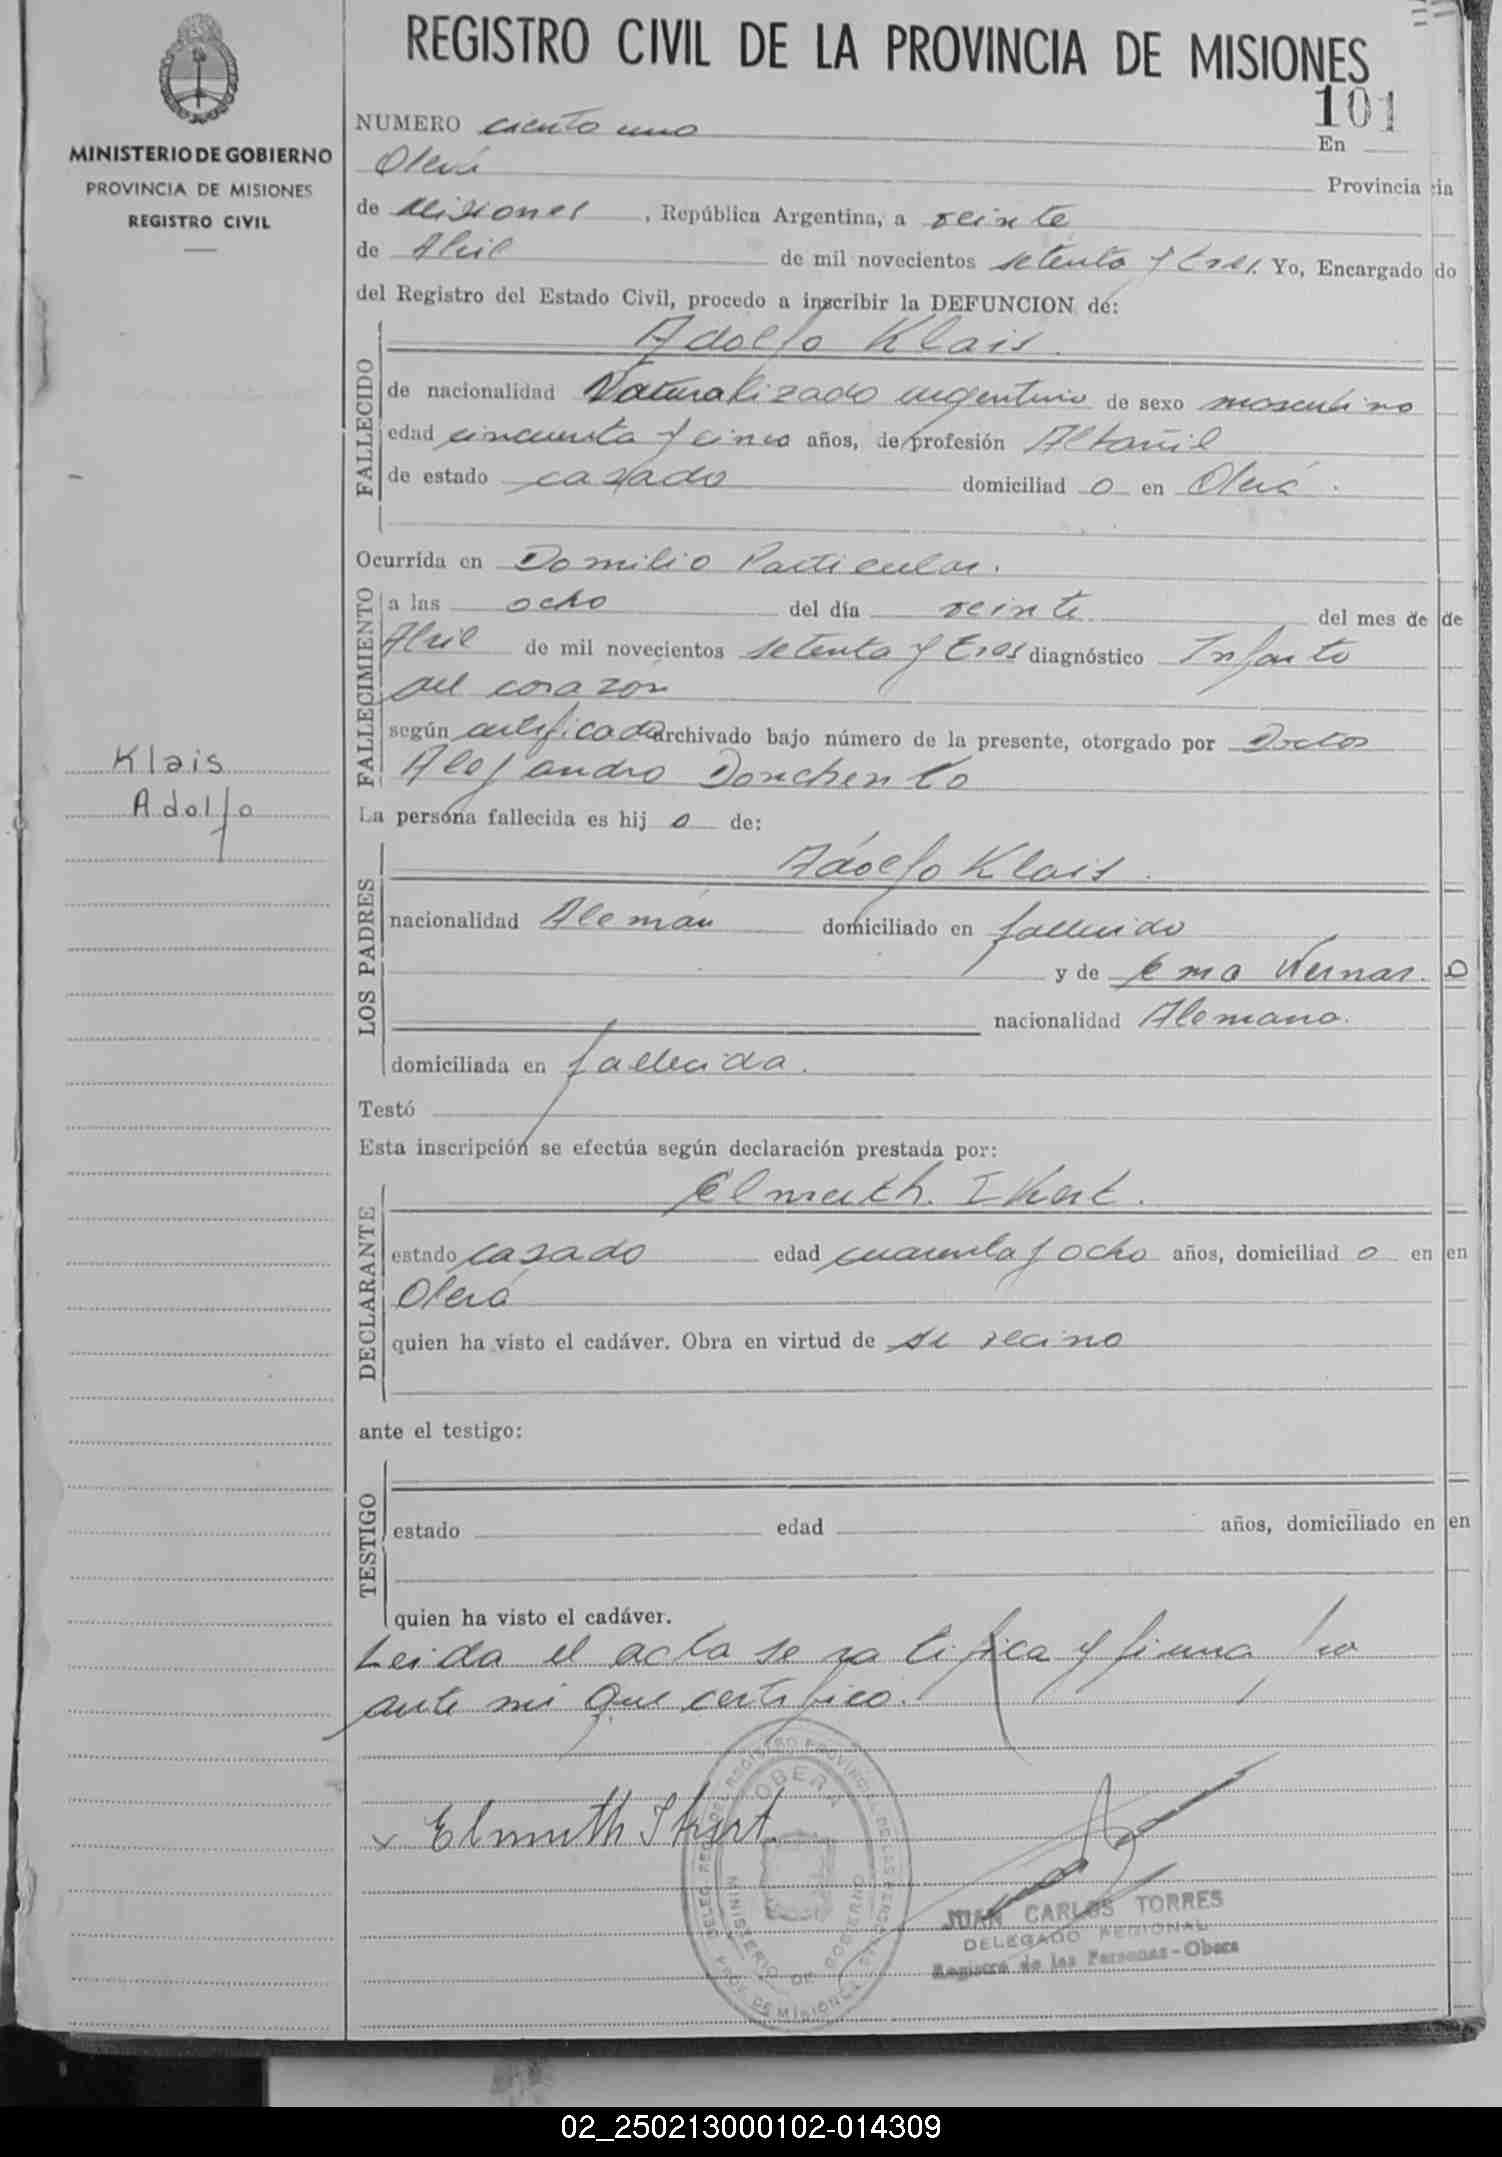 REGISTRO CIVIL DE LA PROVINCIA DE MISIONES
101
MINISTERIO DE GOBIERNO
PROVINCIA DE MISIONES
REGISTRO CIVIL
NUMERO ciento uno En
Oberá Provincia cia
de Misiones , República Argentina, a veinte
de Abril de mil novecientos setenta y tres. Yo, Encargado do
del Registro del Estado Civil, procedo a inscribir la DEFUNCION de:
Adolfo Klais.
FALLECIDO
de nacionalidad Naturalizado argentino de sexo masculino
edad cincuenta y cinco años, de profesión Albañil
de estado casado domiciliad o en Oberá.
Ocurrida en Domilio Particular.
FALLECIMIENTO
a las ocho del día veinte del mes de de
Abril de mil novecientos setenta y tres diagnóstico Infarto
del corazón
según certificado archivado bajo número de la presente, otorgado por Doctor
Alejandro Donchenko
Klais
Adolfo
La persona fallecida es hij o de:
LOS PADRES
Adolfo Klais.
nacionalidad Alemán domiciliado en fallecido
y de Ema Wernar.
nacionalidad Alemana.
domiciliada en fallecida.
Testó
Esta inscripción se efectúa según declaración prestada por:
DECLARANTE
Elmuth. Ikert.
estado casado edad cuarenta y ocho años, domiciliad o en en
Oberá
quien ha visto el cadáver. Obra en virtud de ser vecino
ante el testigo:
TESTIGO
estado edad años, domiciliado en en
quien ha visto el cadáver.
Leida el acta se ratifica y firma
ante mi que certifico.
x Elmuth Ikert
OBERA
MINISTERIO DE GOBIERNO
PROV. DE MISIONES
JUAN CARLOS TORRES
DELEGADO REGIONAL
Registro de las Personas - Obera
02_250213000102-014309